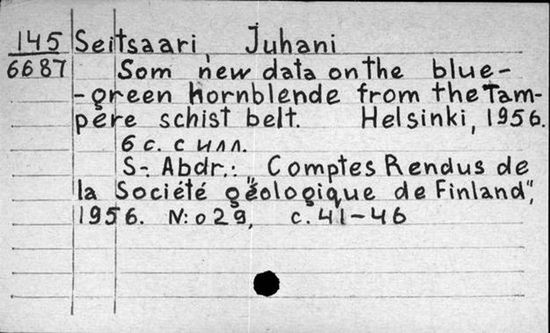 145 Seitsaari, Juhani
6687 Som new data on the blue-
-green hornblende from the Tam-
pere schist belt. Helsinki, 1956.
6 с. с илл.
S.- Abdr.: "Comptes Rendus de
la Société géologique de Finland",
1956. N:o 29, с. 41-46